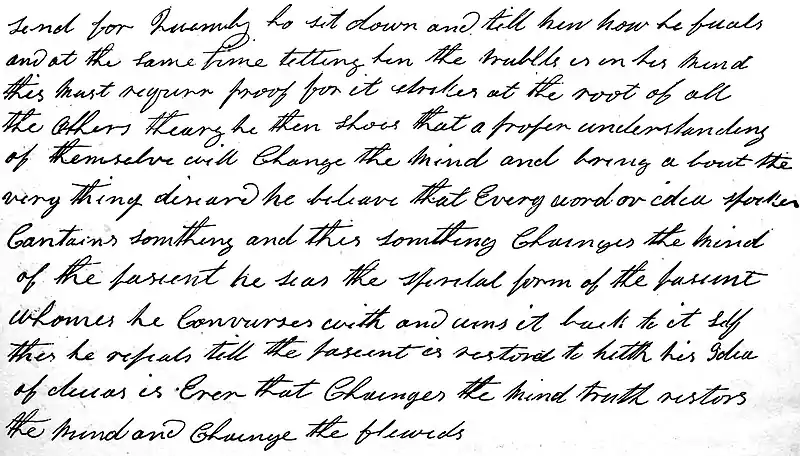 send for Quimby he sit down and tell hew how he fuals
and at the same time telling hin the trublls is in his mind
this must requirr proof for it strikes at the root of all
the others theary he then shoes that a proper understanding
of themselve will Change the mind and bring a bout the
very thing diseard he beleave that Every word or idea spoken
Contains somthing and this somthing Chainges the mind
of the pasient he seas the spirital form of the pasient
whomes he Convurses with and wins it back to it self
this he repeats till the pasient is restord to helth his Idea
of diseas is Error that Chainges the mind truth restors
the mind and Chainge the fluids